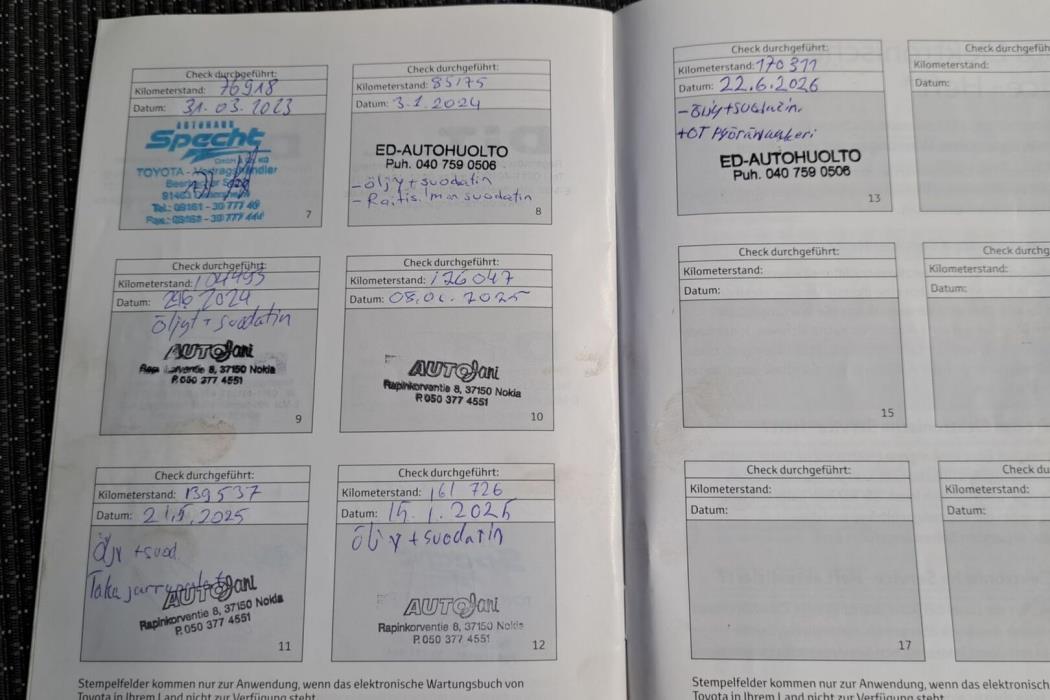 Check durchgeführt:
Kilometerstand: 76918
Datum: 31.03.2023
AUTOHAUS
Specht
GmbH & Co KG
TOYOTA - Vertragshändler
Tel.: 09161 - 30 777 40
Fax.: 09161 - 30 777 444
7
Check durchgeführt:
Kilometerstand: 85175
Datum: 3.1.2024
ED-AUTOHUOLTO
Puh. 040 759 0506
- öljy + suodatin
- Raitis.lman suodatin
8
Check durchgeführt:
Kilometerstand: 104495
Datum: 2.6.2024
Öljyt + suodatin
AUTOJani
Rapinkorventie 8, 37150 Nokia
P. 050 377 4551
9
Check durchgeführt:
Kilometerstand: 126047
Datum: 08.01.2025
AUTOJani
Rapinkorventie 8, 37150 Nokia
P. 050 377 4551
10
Check durchgeführt:
Kilometerstand: 139537
Datum: 21.5.2025
Öljy + suod.
Taka jarrupalat
AUTOJani
Rapinkorventie 8, 37150 Nokia
P. 050 377 4551
11
Check durchgeführt:
Kilometerstand: 161 726
Datum: 15.1.2025
Öljy + suodatin
AUTOJani
Rapinkorventie 8, 37150 Nokia
P. 050 377 4551
12
Stempelfelder kommen nur zur Anwendung, wenn das elektronische Wartungsbuch von
Toyota in Ihrem Land nicht zur Verfügung steht.
Check durchgeführt:
Kilometerstand: 170311
Datum: 22.6.2026
- Öljy + suodatin
+ OT Pyöränlaakeri
ED-AUTOHUOLTO
Puh. 040 759 0506
13
Check durchgefüh
Kilometerstand:
Datum:
Check durchgeführt:
Kilometerstand:
Datum:
15
Check durchg
Kilometerstand:
Datum:
Check durchgeführt:
Kilometerstand:
Datum:
17
Check du
Kilometerstand:
Datum:
Stempelfelder kommen nur zur Anwendung, wenn das elektronisch
Toyota in Ihrem Land nicht zur Verfügung steht.